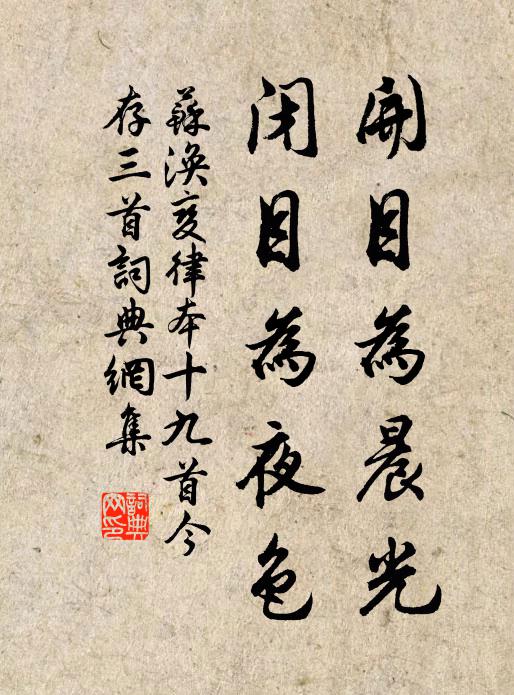 開目為晨光
閉目為夜色
蘇渙變律本十九首今
存三首詞典網集
詞典網印